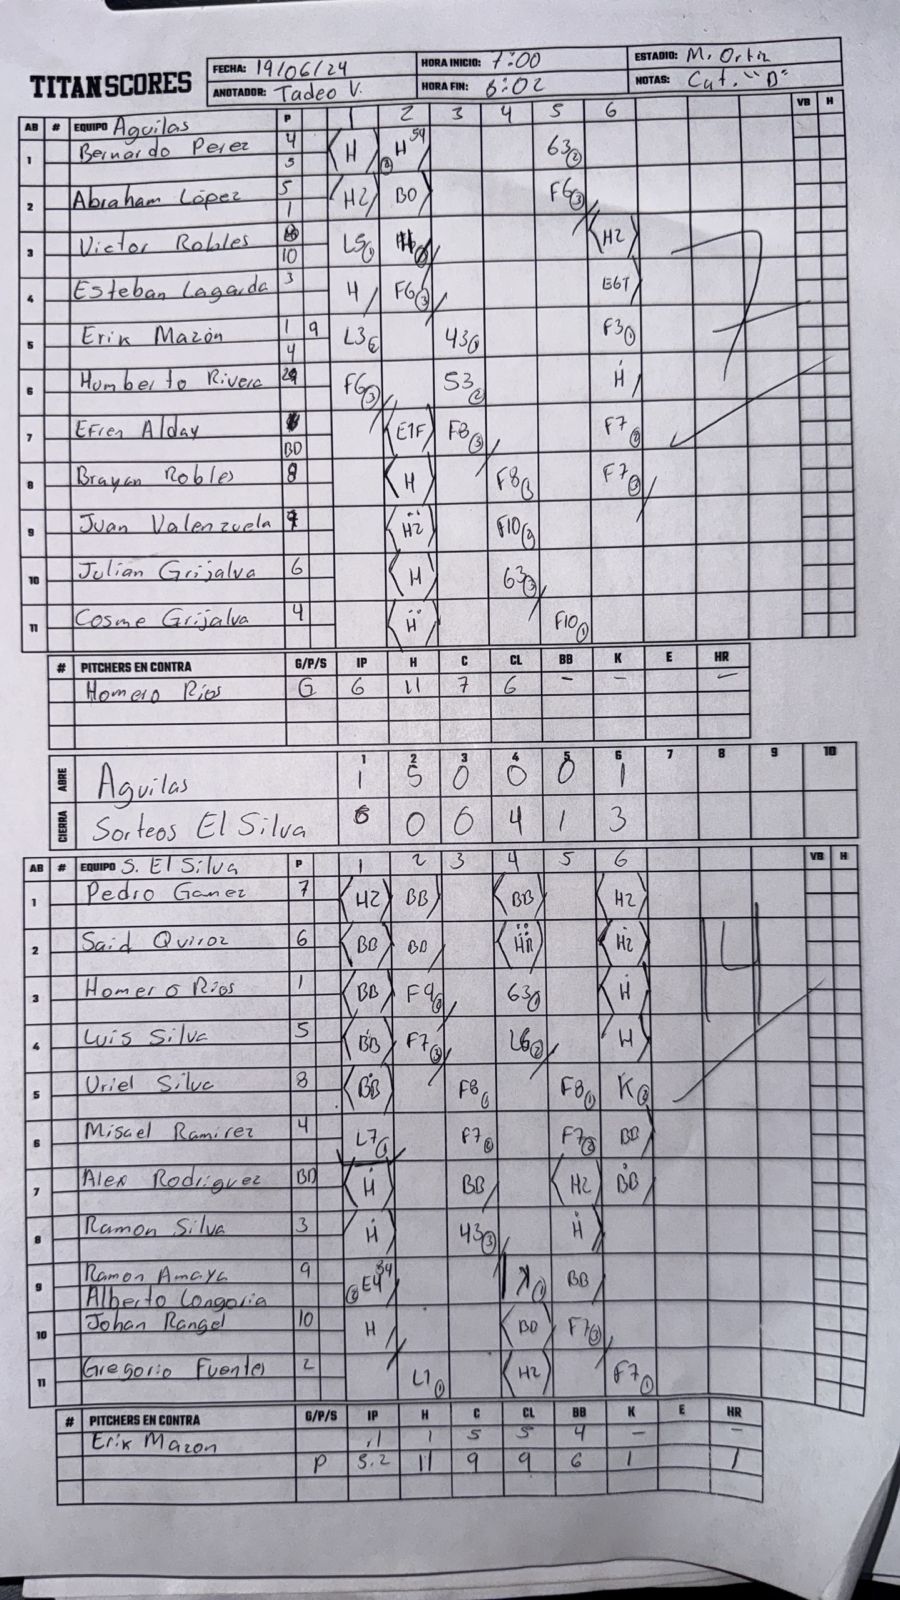 TITANSCORES
FECHA: 19/06/24 HORA INICIO: 7:00 ESTADIO: M. Ortiz
ANOTADOR: Tadeo V. HORA FIN: 8:02 NOTAS: Cat. "D"
AB # EQUIPO Aguilas P 1 2 3 4 5 6 VB H
1 Bernardo Perez 4 5 H H 54 63 2
2 Abraham López 5 1 H2 BD F6 3
3 Victor Robles 10 L5 1 H2
4 Esteban Lagarda 3 H F6 3 E6T
5 Erik Mazón 1 9 4 L3 43 1 F3 1
6 Humberto Rivera F6 3 53 2 H
7 Efren Alday BD E1F F8 3 F7 2
8 Brayan Robles 8 H F8 1 F7 3
9 Juan Valenzuela H2 F10 2
10 Julian Grijalva 6 H 63 3
11 Cosme Grijalva 4 H F10 1
7
# PITCHERS EN CONTRA G/P/S IP H C CL BB K E HR
Homero Rios G 6 11 7 6 - - -
1 2 3 4 5 6 7 8 9 10
ABRE Aguilas 1 5 0 0 0 1
CIERRA Sorteos El Silva 6 0 0 4 1 3
AB # EQUIPO S. El Silva P 1 2 3 4 5 6 VB H
1 Pedro Gamez 7 H2 BB BB H2
2 Said Quiroz 6 BB BD HR H2
3 Homero Rios 1 BB F9 63 1 H
4 Luis Silva 5 BB F7 3 L6 2 H
5 Uriel Silva 8 BB F8 1 F8 1 K 2
6 Misael Ramirez 4 L7 1 F7 2 F7 2 BB
7 Alex Rodriguez BD H BB H2 BB
8 Ramon Silva 3 H 43 3 H
9 Ramon Amaya 9 E4 34 K 1 BB
Alberto Longoria
10 Johan Rangel 10 H BD F7 3
11 Gregorio Fuentes 2 L1 1 H2 F7 1
14
# PITCHERS EN CONTRA G/P/S IP H C CL BB K E HR
Erik Mazon .1 1 5 5 4 - -
P 5.2 11 9 9 6 1 1